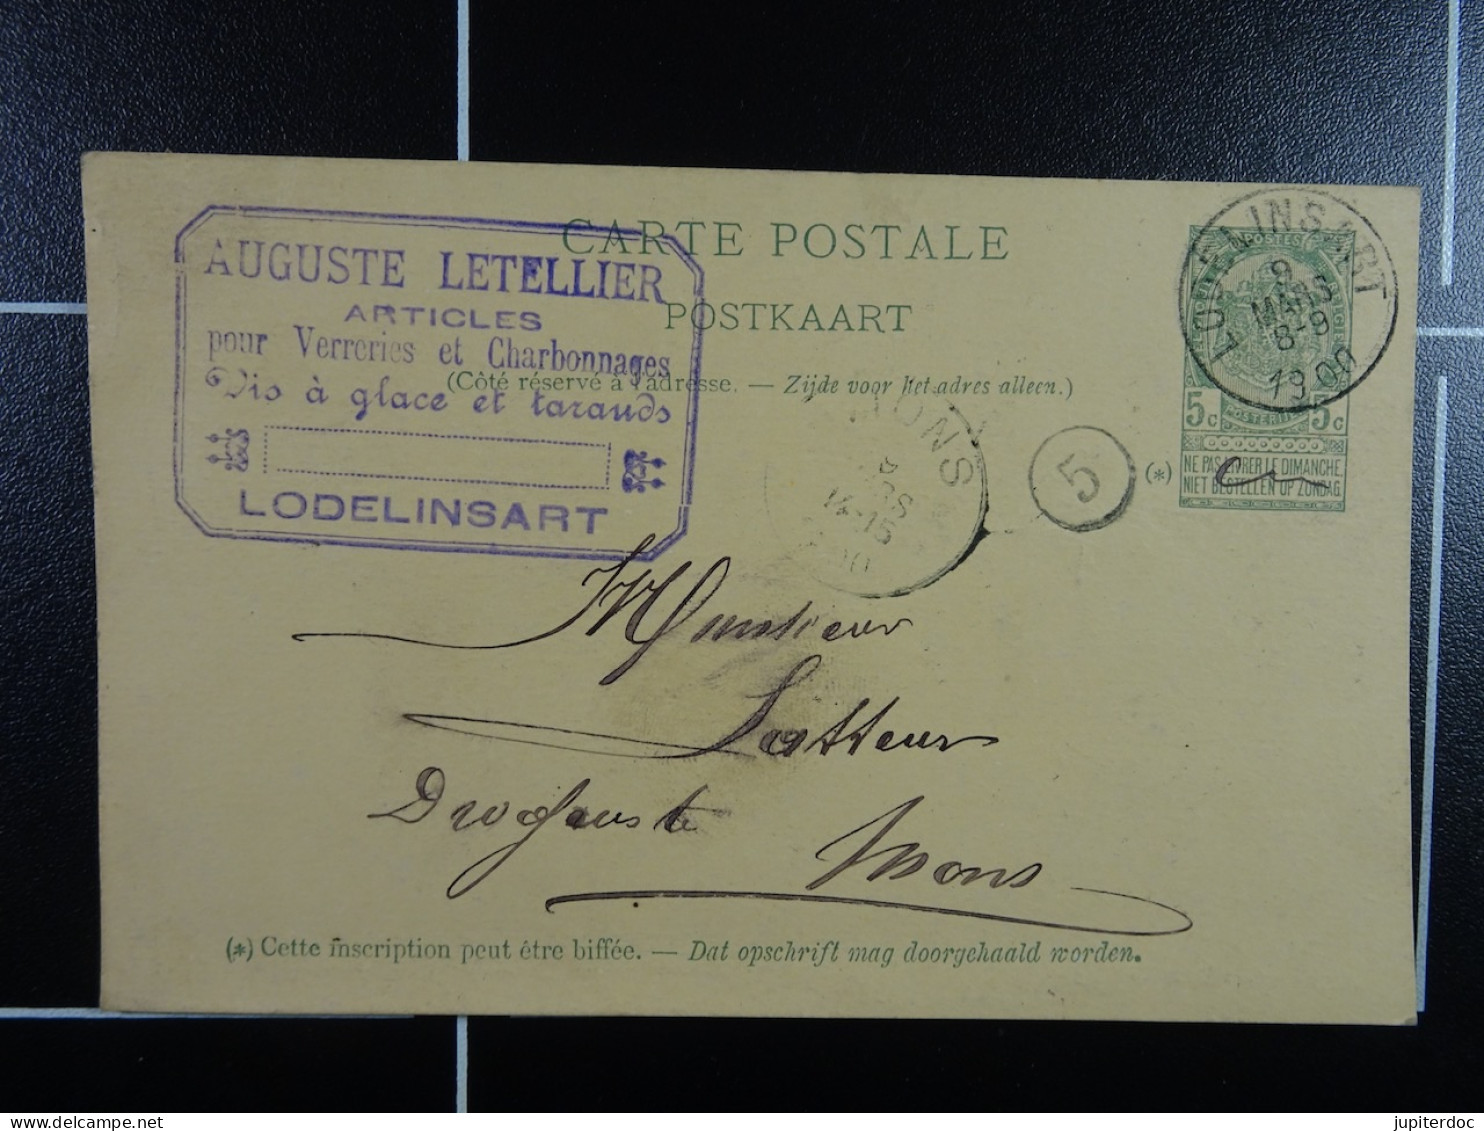 CARTE POSTALE
POSTKAART
(Côté réservé à l'adresse. — Zijde voor het adres alleen.)
AUGUSTE LETELLIER
ARTICLES
pour Verreries et Charbonnages
Vis à glace et tarauds
LODELINSART
LODELINSART
9
MARS
8-9
1900
POSTES
5c 5c
POSTERIJEN
(*) NE PAS LIVRER LE DIMANCHE.
NIET BESTELLEN OP ZONDAG.
MONS
5
Monsieur
Latteur
Droguiste
Mons
(*) Cette inscription peut être biffée. — Dat opschrift mag doorgehaald worden.
jupiterdoc